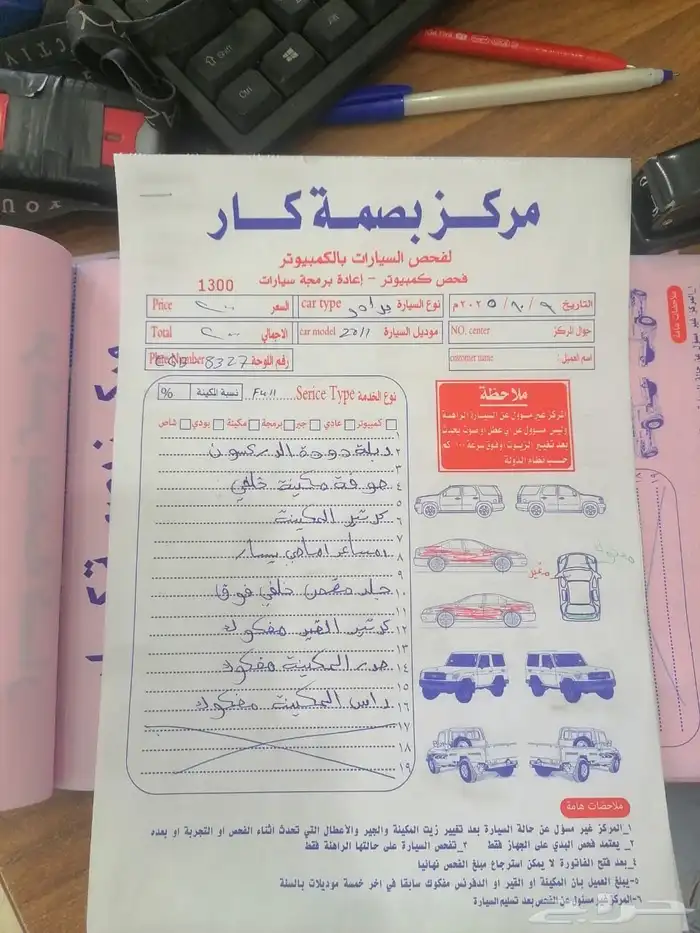 مركز بصمة كار
لفحص السيارات بالكمبيوتر
فحص كمبيوتر - إعادة برمجة سيارات
1300
التاريخ ٩ / ١٠ / ٢٠٢٥م
نوع السيارة برادو car type
السعر ٢٠٠ Price
جوال المركز NO. center
موديل السيارة 2011 car model
الاجمالي ٢٠٠ Total
اسم العميل: customer name
رقم اللوحة 8327 Plate Number
نوع الخدمة Serice Type Full
نسبة المكينة %
كمبيوتر عادي جير برمجة مكينة بودي شاص
١
٢ دبلة دوحة الدركسون
٣
٤ صوفة مكينة خلفي
٥
٦ كرتير المكينة
٧
٨ مساعد امامي يسار
٩
١٠ جلد مقص خلفي فوق
١١
١٢ كرتير القير مفكوك
١٣
١٤ صدر المكينة مفكوك
١٥
١٦ راس المكينة مفكوك
١٧
١٨
١٩
ملاحظة
المركز غير مسؤول عن السيارة الراهنة
وليس مسؤول عن اي عطل او صوت يحدث
بعد تغيير الزيوت او فوق سرعة ١٠٠ كم
حسب نظام الدولة
مغير
ملاحظات هامة
١_المركز غير مسؤل عن حالة السيارة بعد تغيير زيت المكينة والجير والأعطال التي تحدث اثناء الفحص او التجربة او بعده
٢_ يعتمد فحص البدي على الجهاز فقط ٣_تفحص السيارة على حالتها الراهنة فقط
٤_بعد فتح الفاتورة لا يمكن استرجاع مبلغ الفحص نهائيا
٥-يبلغ العميل بان المكينة او القير او الدفرنس مفكوك سابقا في اخر خمسة موديلات بالسلة
٦-المركز غير مسئول عن الفحص بعد تسليم السيارة
حراج
Shift
Ctrl